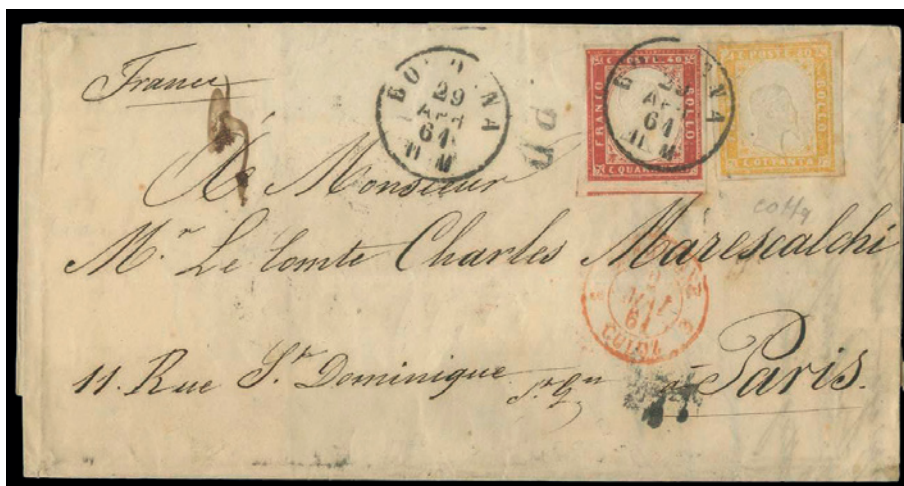 France
BOLOGNA
29
APR
61
11 M
PD
C. POSTE 40
FRANCO
BOLLO
C. QUARANTA
BOLOGNA
29
APR
61
11 M
C. POSTE 80
BOLLO
C. OTTANTA
A Monsieur
Mr. Le Comte Charles Marescalchi
61
CULOZ
11. Rue St. Dominique St. Gn à Paris.